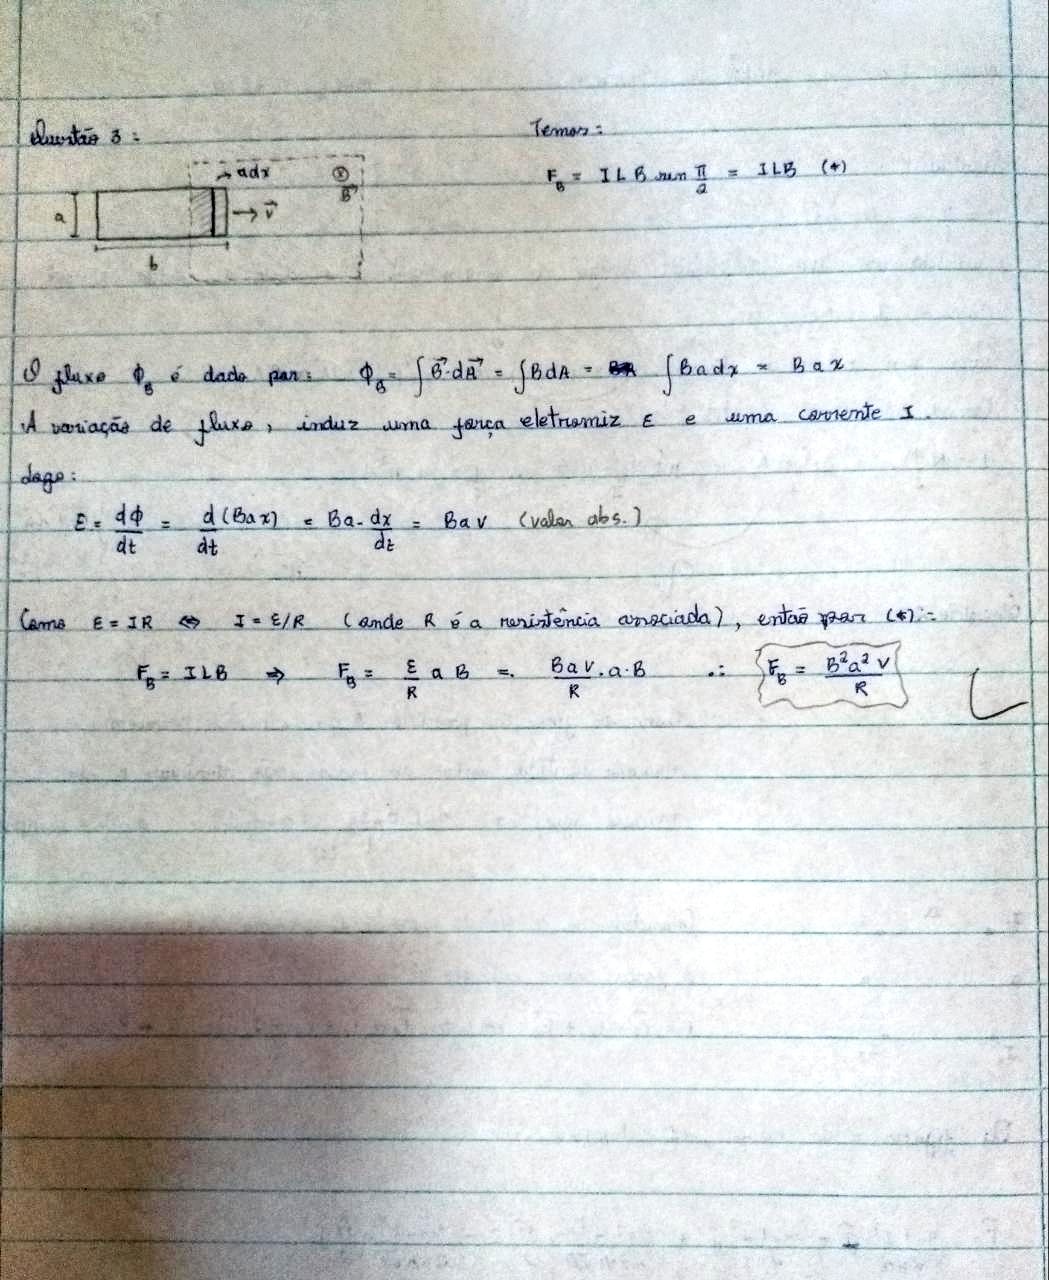 Questão 3:
Temos:
F_B = I L B sen π/2 = ILB (*)
a dx
⊗
B⃗
a
v⃗
b
O fluxo Φ_B é dado por: Φ_B = ∫B⃗·dA⃗ = ∫BdA = ∫Badx = Bax
A variação de fluxo, induz uma força eletromiz ε e uma corrente I.
Logo:
ε = dϕ/dt = d(Bax)/dt = Ba·dx/dt = Bav (valor abs.)
Como ε = IR ⇔ I = ε/R (onde R é a resistência associada), então por (*):
F_B = ILB ⇒ F_B = ε/R a B = Bav/R · a·B ∴ F_B = B²a²v/R